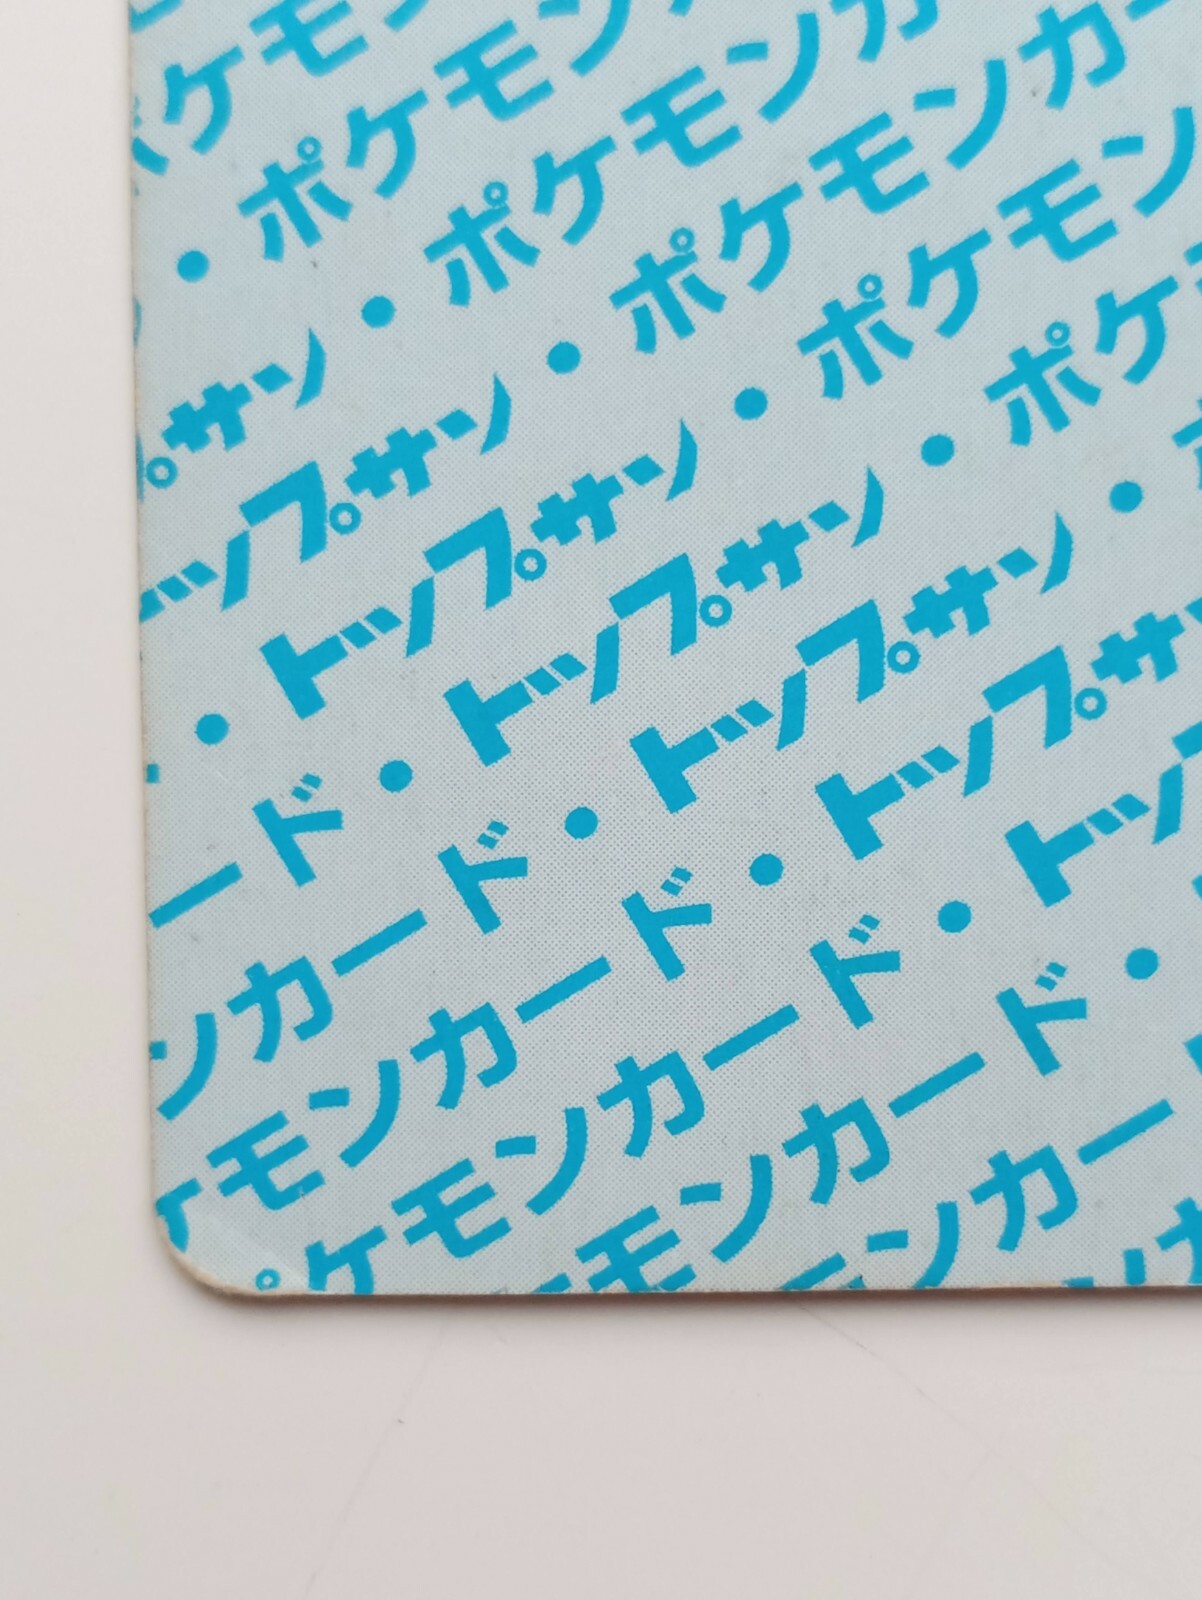 ケモ
・ポケモン
サン・ポケモンカ
ップサン・ポケモンカー
・トップサン・ポケモン
ード・トップサン・ポケ
ンカード・トップサン・
ケモンカード・トップサ
ケモンカード・トッ
モンカード・
ンカー